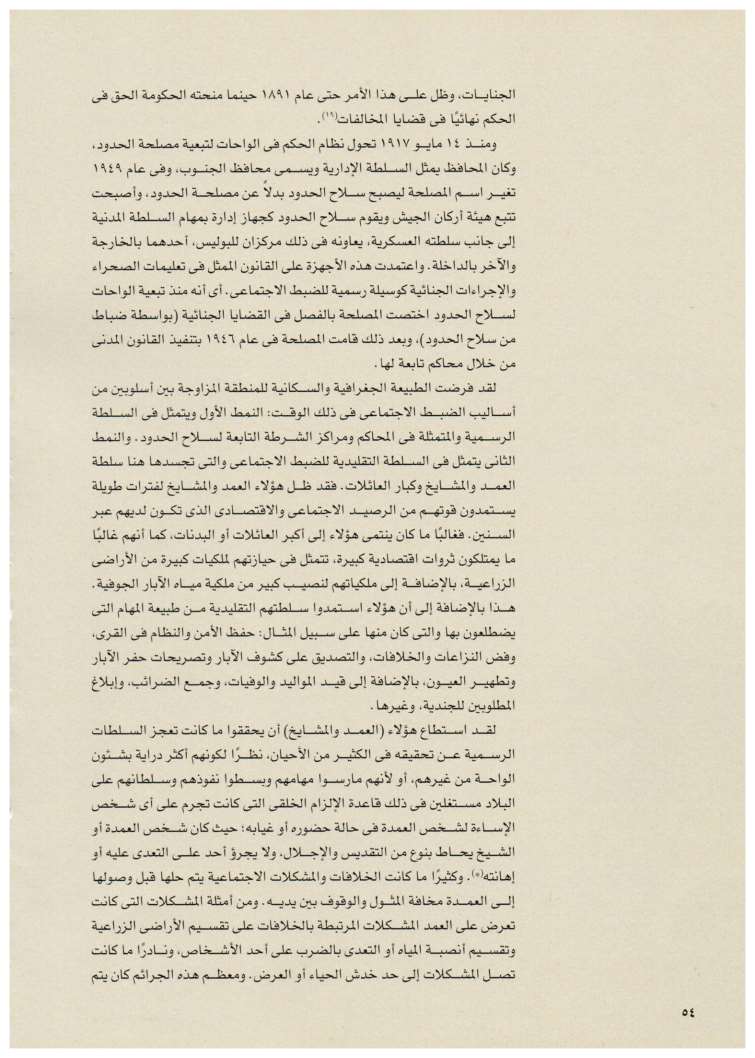 الجنايات، وظل على هذا الأمر حتى عام ١٨٩١ حينما منحته الحكومة الحق فى
الحكم نهائيًا فى قضايا المخالفات(١٩).
ومنذ ١٤ مايو ١٩١٧ تحول نظام الحكم فى الواحات لتبعية مصلحة الحدود،
وكان المحافظ يمثل السلطة الإدارية ويسمى محافظ الجنوب، وفى عام ١٩٤٩
تغير اسم المصلحة ليصبح سلاح الحدود بدلاً عن مصلحة الحدود، وأصبحت
تتبع هيئة أركان الجيش ويقوم سلاح الحدود كجهاز إدارة بمهام السلطة المدنية
إلى جانب سلطته العسكرية، يعاونه فى ذلك مركزان للبوليس، أحدهما بالخارجة
والآخر بالداخلة. واعتمدت هذه الأجهزة على القانون الممثل فى تعليمات الصحراء
والإجراءات الجنائية كوسيلة رسمية للضبط الاجتماعى. أى أنه منذ تبعية الواحات
لسلاح الحدود اختصت المصلحة بالفصل فى القضايا الجنائية (بواسطة ضباط
من سلاح الحدود)، وبعد ذلك قامت المصلحة فى عام ١٩٤٦ بتنفيذ القانون المدنى
من خلال محاكم تابعة لها.
لقد فرضت الطبيعة الجغرافية والسكانية للمنطقة المزاوجة بين أسلوبين من
أساليب الضبط الاجتماعى فى ذلك الوقت: النمط الأول ويتمثل فى السلطة
الرسمية والمتمثلة فى المحاكم ومراكز الشرطة التابعة لسلاح الحدود. والنمط
الثانى يتمثل فى السلطة التقليدية للضبط الاجتماعى والتى تجسدها هنا سلطة
العمد والمشايخ وكبار العائلات. فقد ظل هؤلاء العمد والمشايخ لفترات طويلة
يستمدون قوتهم من الرصيد الاجتماعى والاقتصادى الذى تكون لديهم عبر
السنين. فغالبًا ما كان ينتمى هؤلاء إلى أكبر العائلات أو البدنات، كما أنهم غالبًا
ما يمتلكون ثروات اقتصادية كبيرة، تتمثل فى حيازتهم لملكيات كبيرة من الأراضى
الزراعية، بالإضافة إلى ملكياتهم لنصيب كبير من ملكية مياه الآبار الجوفية.
هذا بالإضافة إلى أن هؤلاء استمدوا سلطتهم التقليدية من طبيعة المهام التى
يضطلعون بها والتى كان منها على سبيل المثال: حفظ الأمن والنظام فى القرى،
وفض النزاعات والخلافات، والتصديق على كشوف الآبار وتصريحات حفر الآبار
وتطهير العيون، بالإضافة إلى قيد المواليد والوفيات، وجمع الضرائب، وإبلاغ
المطلوبين للجندية، وغيرها.
لقد استطاع هؤلاء (العمد والمشايخ) أن يحققوا ما كانت تعجز السلطات
الرسمية عن تحقيقه فى الكثير من الأحيان، نظرًا لكونهم أكثر دراية بشئون
الواحة من غيرهم، أو لأنهم مارسوا مهامهم وبسطوا نفوذهم وسلطانهم على
البلاد مستغلين فى ذلك قاعدة الإلزام الخلقى التى كانت تجرم على أى شخص
الإساءة لشخص العمدة فى حالة حضوره أو غيابه؛ حيث كان شخص العمدة أو
الشيخ يحاط بنوع من التقديس والإجلال، ولا يجرؤ أحد على التعدى عليه أو
إهانته(*). وكثيرًا ما كانت الخلافات والمشكلات الاجتماعية يتم حلها قبل وصولها
إلى العمدة مخافة المثول والوقوف بين يديه. ومن أمثلة المشكلات التى كانت
تعرض على العمد المشكلات المرتبطة بالخلافات على تقسيم الأراضى الزراعية
وتقسيم أنصبة المياه أو التعدى بالضرب على أحد الأشخاص، ونادرًا ما كانت
تصل المشكلات إلى حد خدش الحياء أو العرض. ومعظم هذه الجرائم كان يتم
٥٤